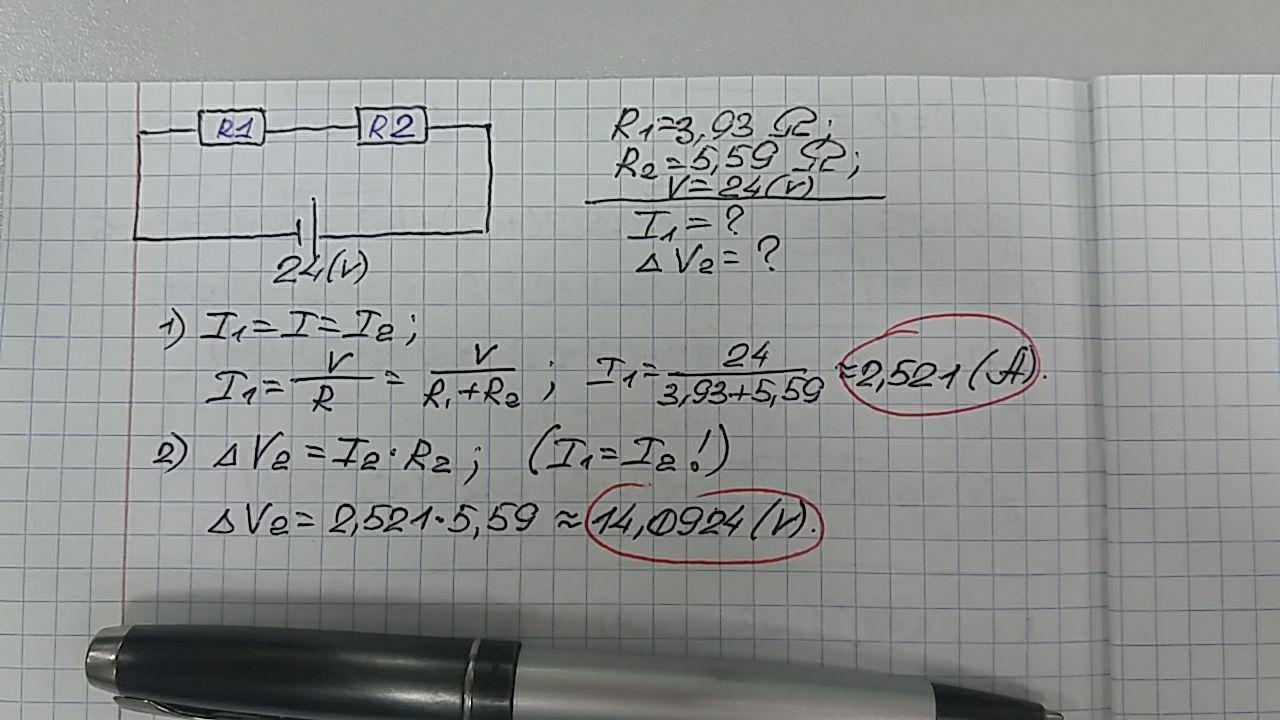 R1 R2
24(V)
R₁=3,93 Ω;
R₂=5,59 Ω;
V=24(V)
I₁=?
ΔV₂=?
1) I₁=I=I₂;
I₁=V/R=V/(R₁+R₂); I₁=24/(3,93+5,59)≈2,521(A).
2) ΔV₂=I₂·R₂; (I₁=I₂!)
ΔV₂=2,521·5,59≈14,0924(V).